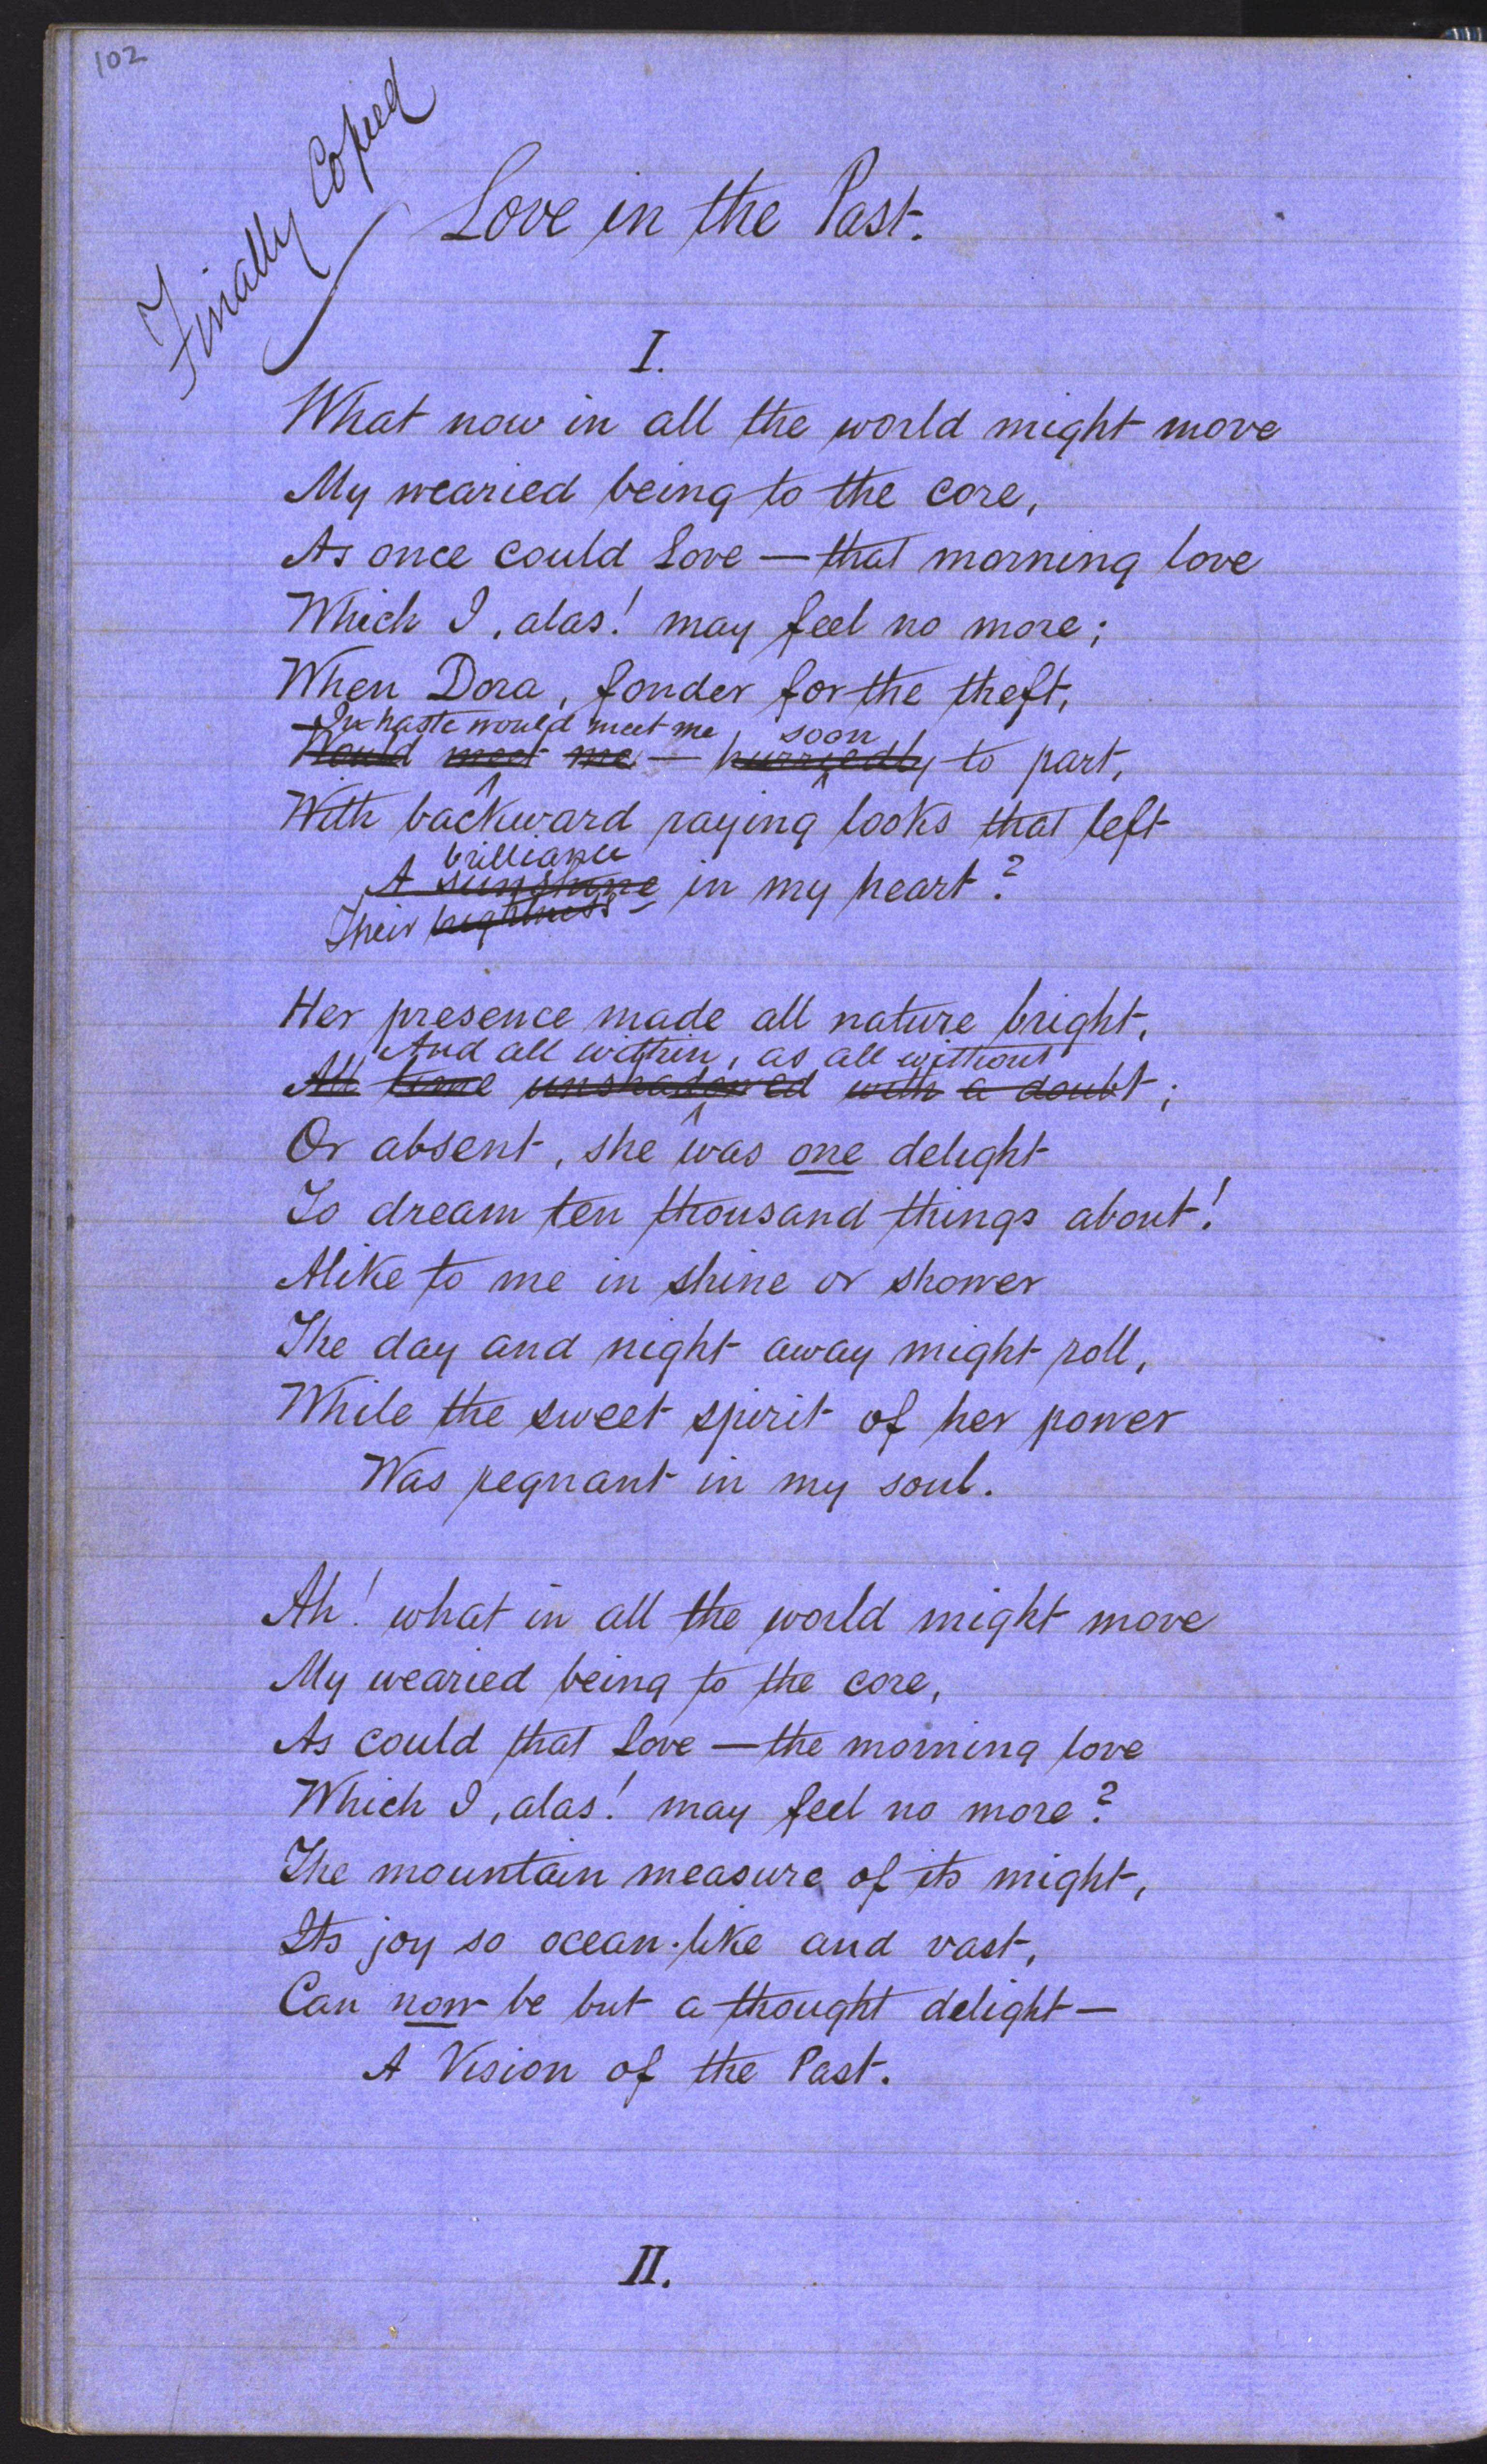 102
Finally Copied
Love in the Past.
I.
What now in all the world might move
My wearied being to the core,
As once could Love — that morning love
Which I, alas! may feel no more;
When Dora, fonder for the theft,
In haste would meet me soon
Would meet me — hurriedly to part,
With backward raying looks that left
brilliance
A sunshine in my heart?
Their brightness
Her presence made all nature bright,
And all within, as all without
All time unshadowed with a doubt;
Or absent, she was one delight
To dream ten thousand things about!
Alike to me in shine or shower
The day and night away might roll,
While the sweet spirit of her power
Was pegnant in my soul.
Ah! what in all the world might move
My wearied being to the core,
As could that Love — the morning love
Which I, alas! may feel no more?
The mountain measure of its might,
Its joy so ocean-like and vast,
Can now be but a thought delight —
A Vision of the Past.
II.